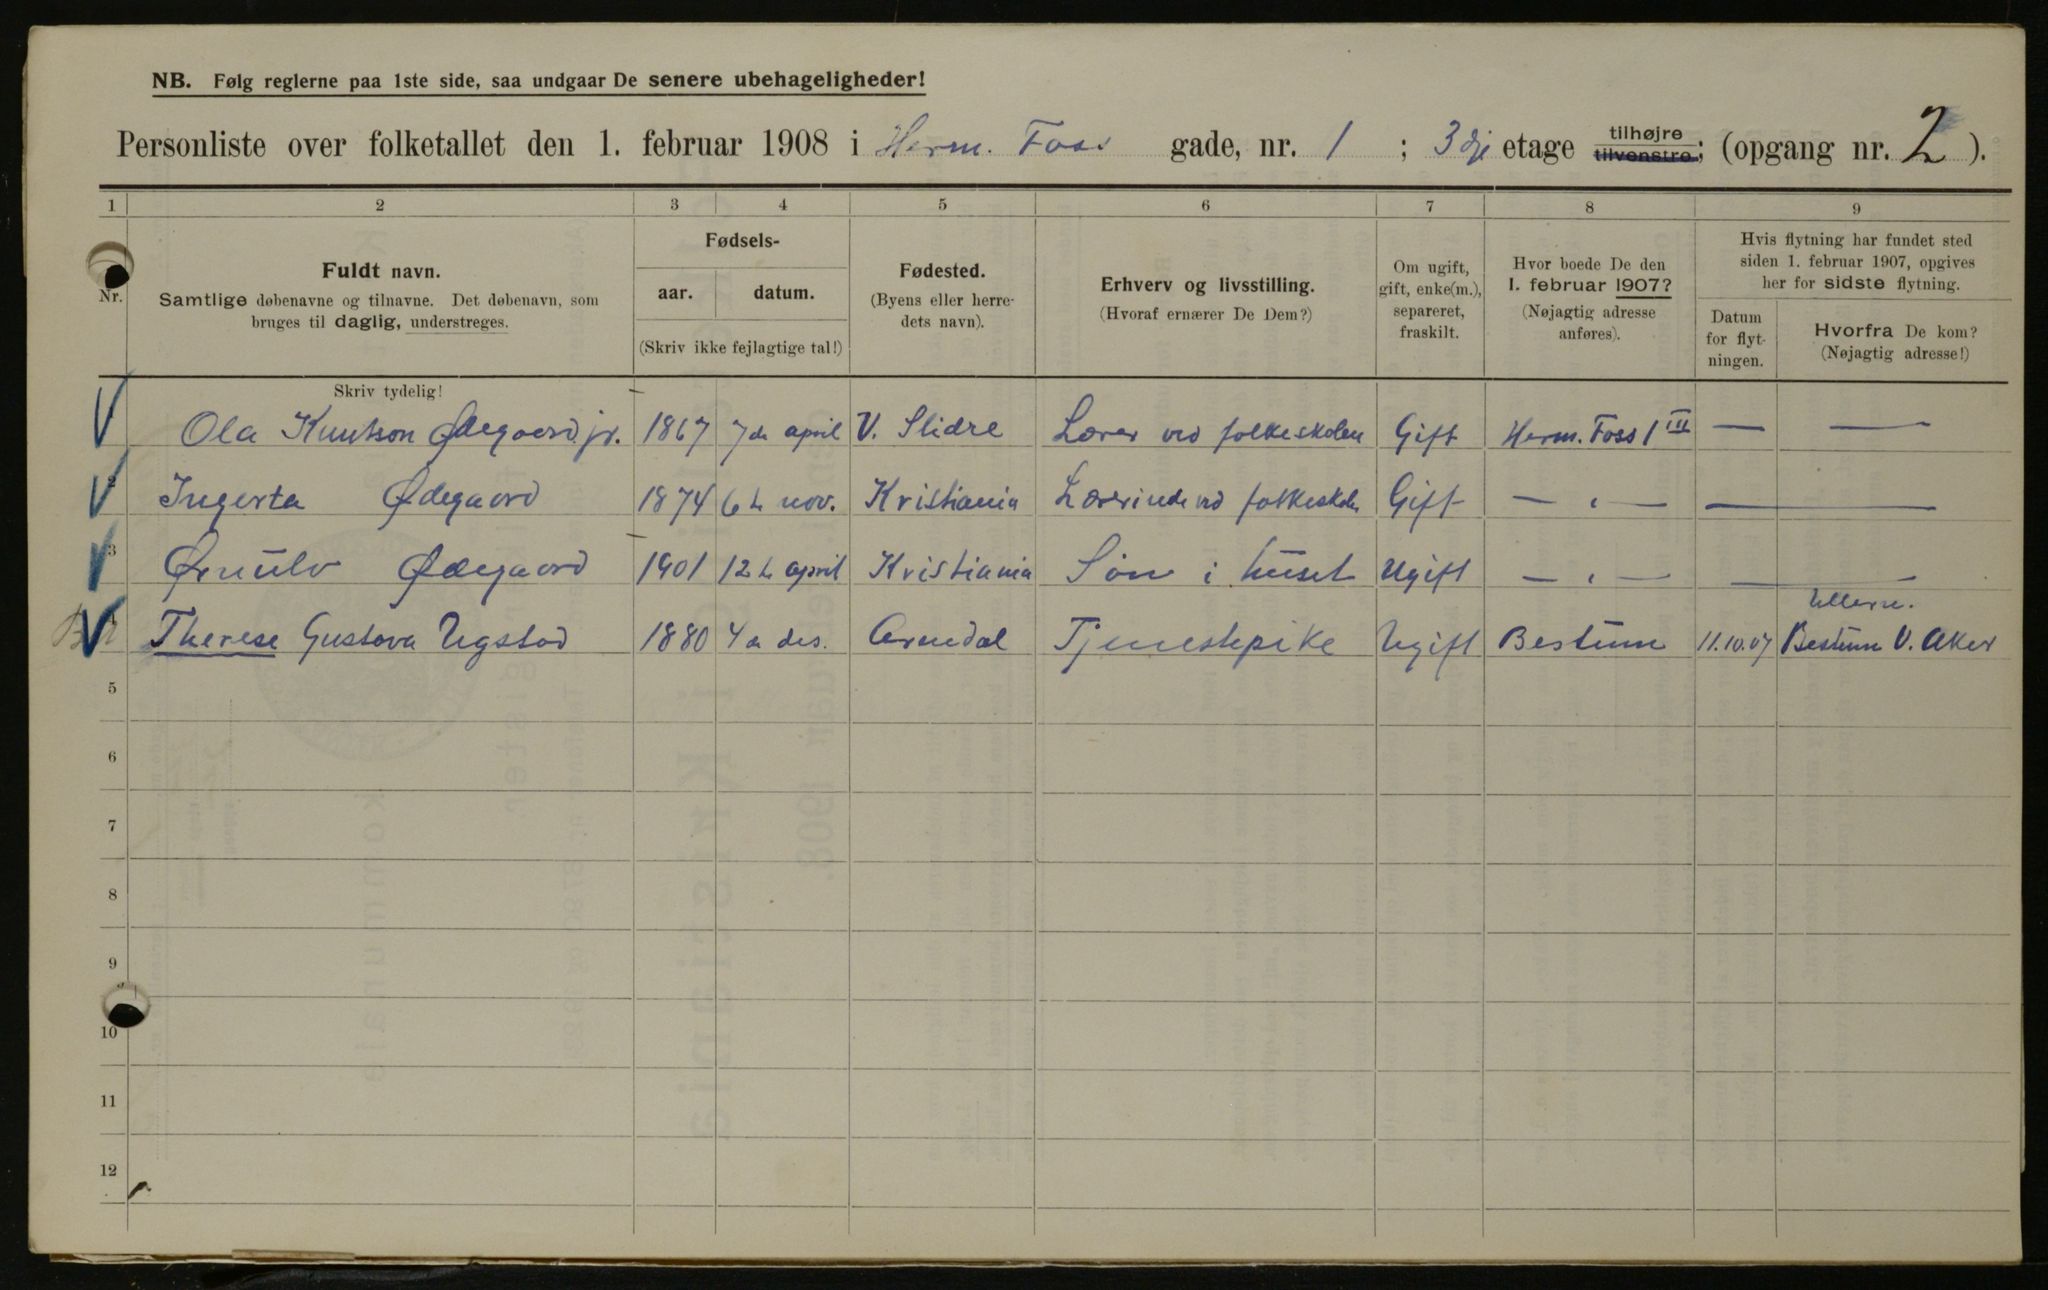 NB. Følg reglerne paa 1ste side, saa undgaar De senere ubehageligheder!
Personliste over folketallet den 1. februar 1908 i Herm. Foss gade, nr. 1 ; 3dje etage tilhøjre tilvenstre; (opgang nr. 2 ).
1 2 3 4 5 6 7 8 9
Nr.
Fuldt navn.
Samtlige døbenavne og tilnavne. Det døbenavn, som
bruges til daglig, understreges.
Fødsels-
aar. datum.
(Skriv ikke fejlagtige tal!)
Fødested.
(Byens eller herre-
dets navn).
Erhverv og livsstilling.
(Hvoraf ernærer De Dem?)
Om ugift,
gift, enke(m.),
separeret,
fraskilt.
Hvor boede De den
1. februar 1907?
(Nøjagtig adresse
anføres).
Hvis flytning har fundet sted
siden 1. februar 1907, opgives
her for sidste flytning.
Datum
for flyt-
ningen.
Hvorfra De kom?
(Nøjagtig adresse!)
Skriv tydelig!
Ola Knutson Ødegaard jr. 1867 7de april V. Slidre Lærer ved folkeskolen Gift Herm. Foss 1 III — —
2 Ingerta Ødegaard 1874 6te nov. Kristiania Lærerinde ved folkeskolen Gift — " — —
3 Ørnulv Ødegaard 1901 12te april Kristiania Søn i huset Ugift — " — —
Ullern.
4 Therese Gustava Ugstad 1880 4de des. Arendal Tjenestepike Ugift Bestum 11.10.07 Bestum V. Aker
5
6
7
8
9
10
11
12